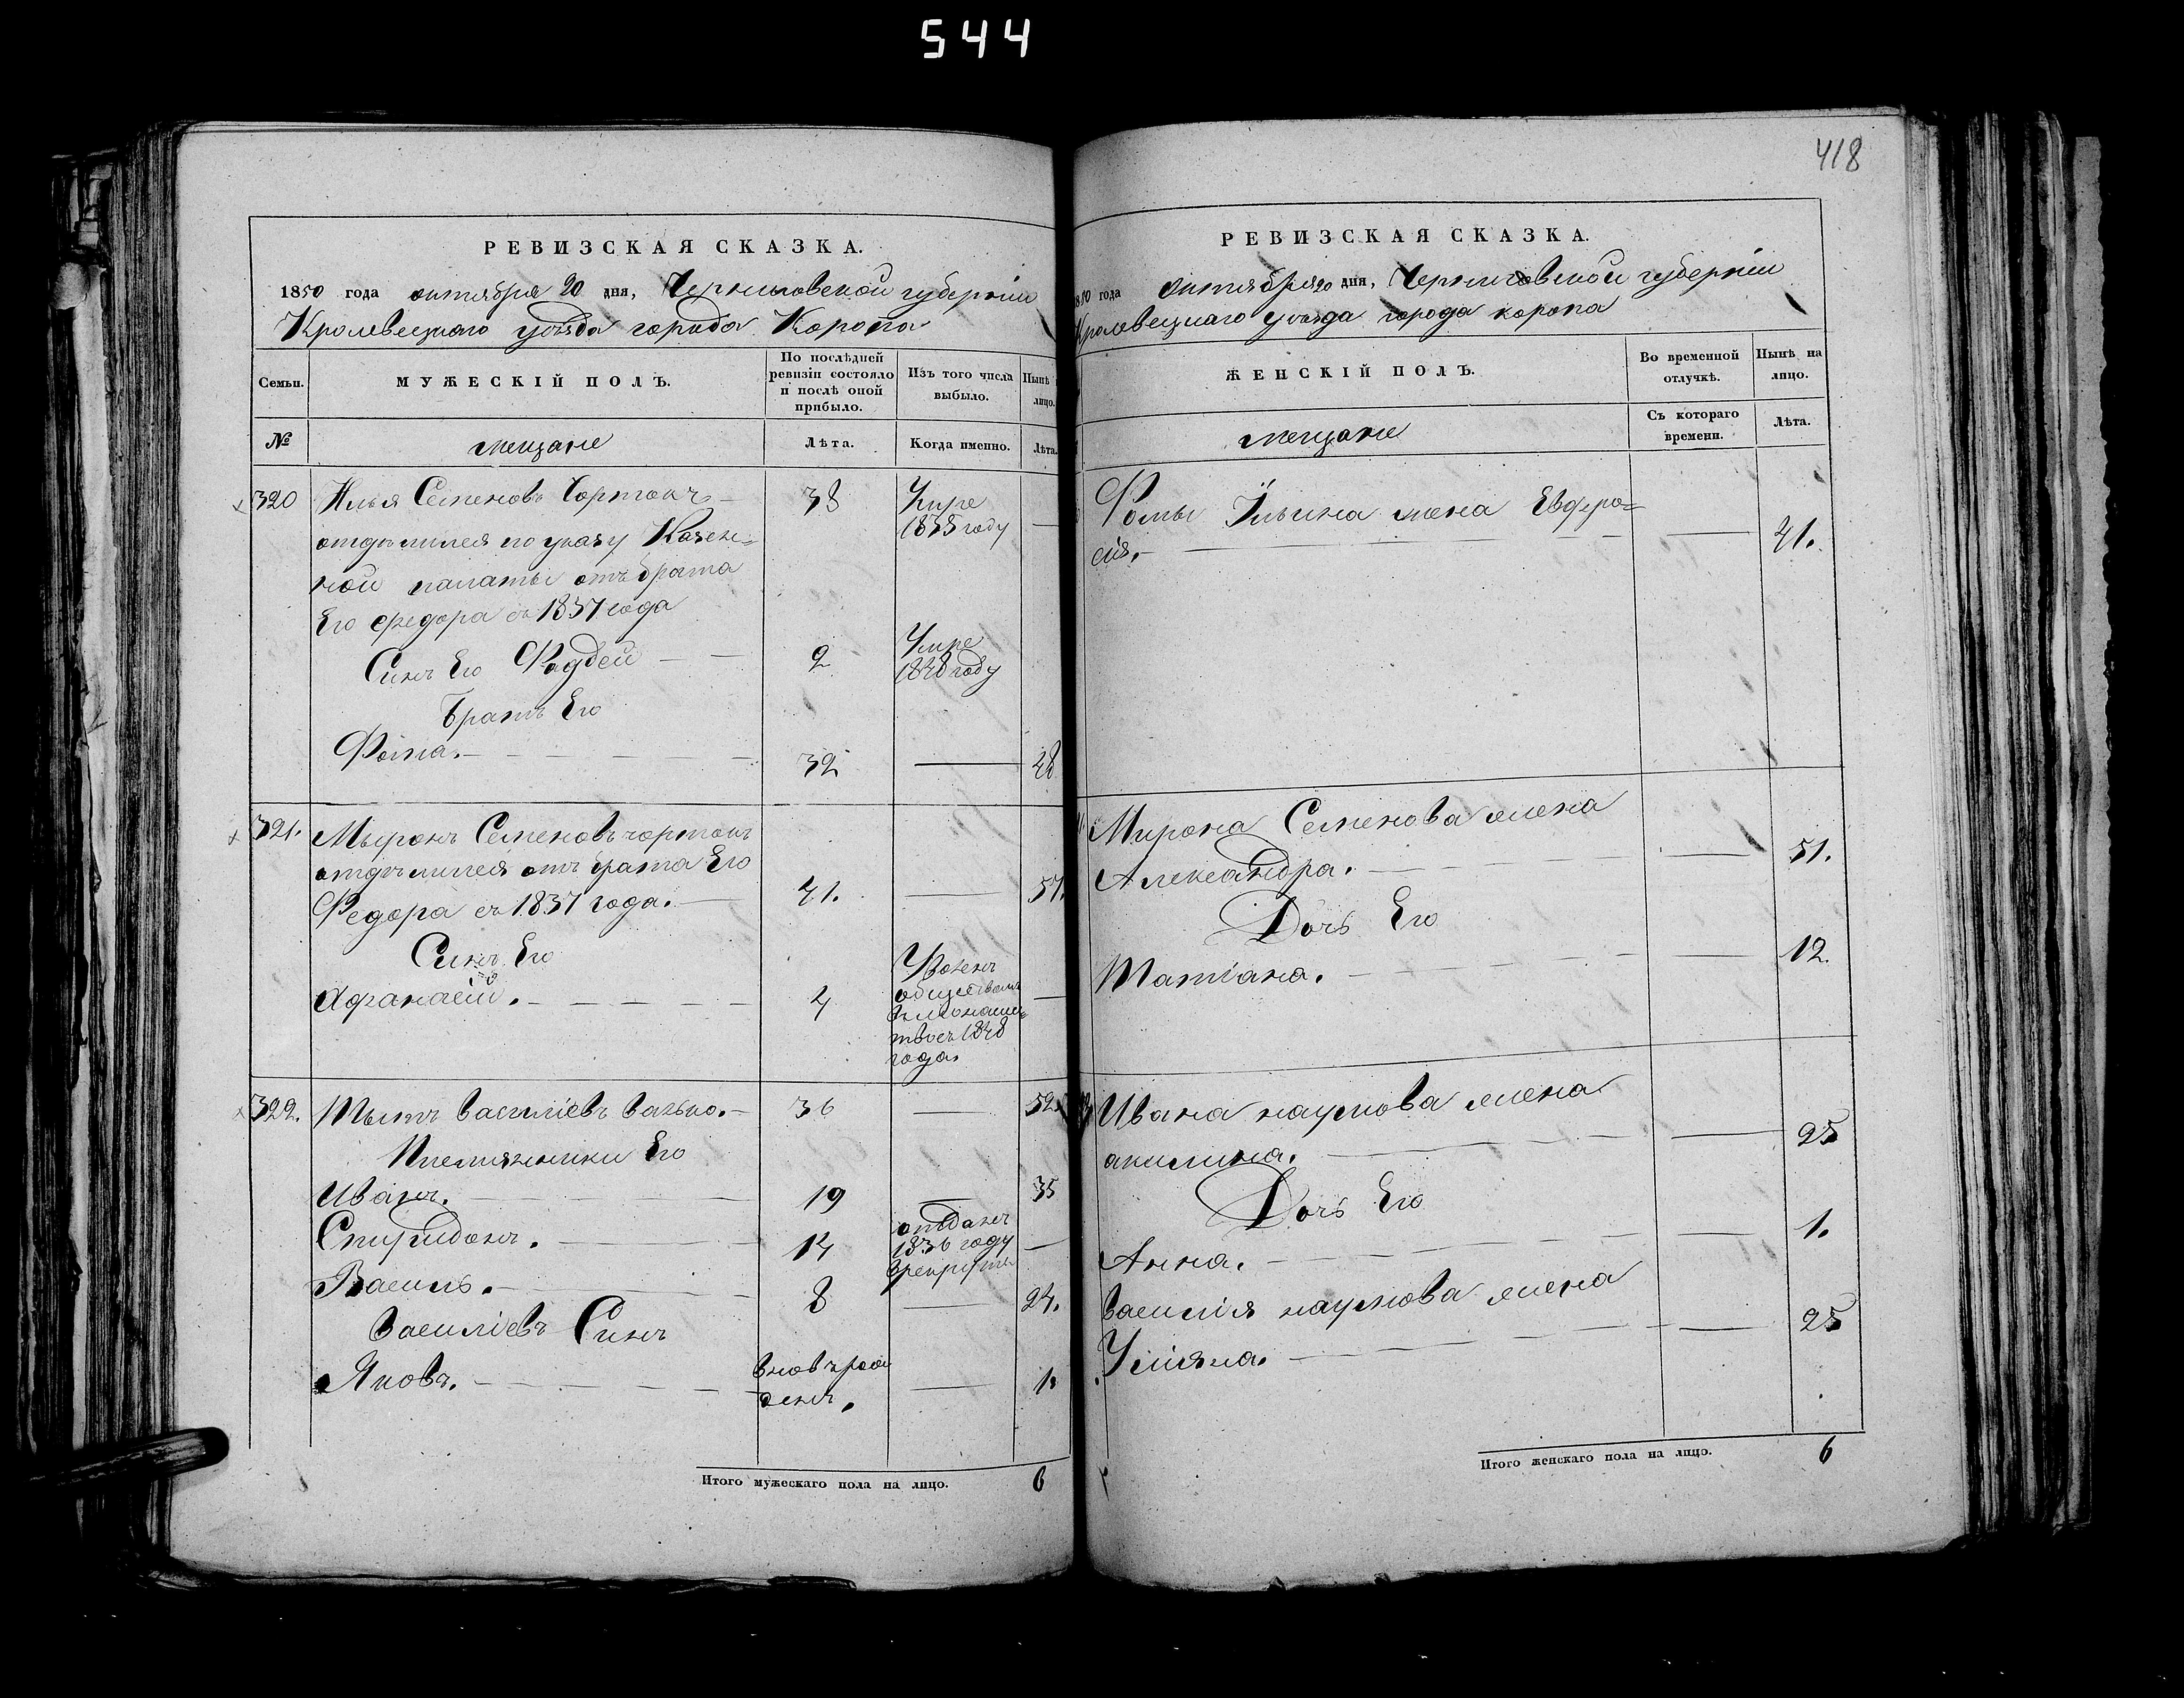 544
418
РЕВИЗСКАЯ СКАЗКА.
1850 года октября 20 дня, Черниговской губерніи
Кролевецкаго уѣзда города Коропа
Семьи.
МУЖЕСКІЙ ПОЛЪ.
По послѣдней ревизіи состояло и послѣ оной прибыло.
Изъ того числа выбыло.
Нынѣ лицо.
№
мещане
Лѣта.
Когда именно.
Лѣта.
320 Илья Семеновъ Чортокъ 38 Умре
1838 году
отдѣлился по указу Казен=
ной палаты отъ брата
Его Федора съ 1837 года
Синъ Его Фадѣй 2 Умре
1848 году
Братъ Его
Фома. 32 48
321. Мыронъ Семеновъ чортокъ
отдѣлился отъ брата Его
Федора съ 1837 года. 41. 57.
Синъ Его
Афанасій. 4
обществомъ
1848
года.
322. Тытъ Василіевъ 36 52.
Племянники Его
Иванъ. 19 35
Спиридонъ. 14 отъданъ
1836 году
врекруты
Василь. 8 24.
Василіевъ Синъ
Яковъ. вновърож
денъ. 1.
Итого мужескаго пола на лицо. 6
РЕВИЗСКАЯ СКАЗКА.
1850 года октября 20 дня, Черниговской губерніи
Кролевецкаго уѣзда города коропа
ЖЕНСКІЙ ПОЛЪ.
Во временной отлучкѣ.
Нынѣ на лицо.
мещане
Съ котораго времени.
Лѣта.
Фомы Ильина жена Евфро=
сія. 41.
Мирона Семенова жена
Александра. 51.
Дочь Его
Татіана. 12.
Ивана наумова жена
акилина. 25
Дочь Его
Анна. 1.
василія наумова жена
Уліяна. 25
Итого женскаго пола на лицо. 6